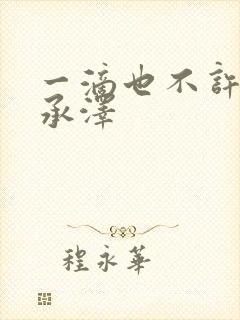 一滴也不許
承澤
程永華